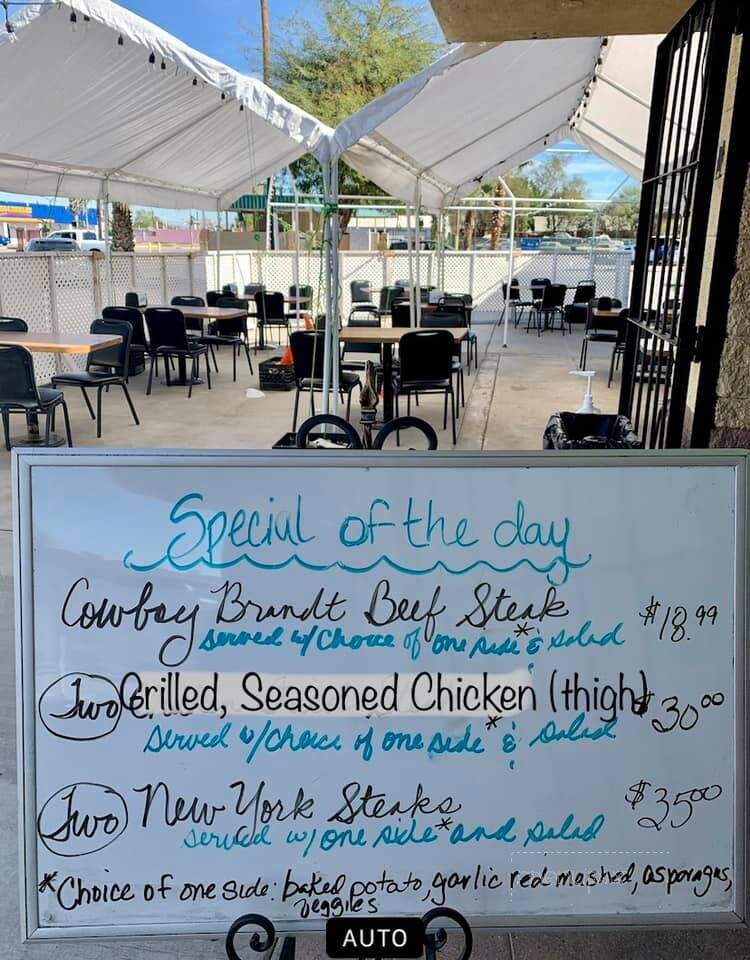 Special of the day
Cowboy Brandt Beef Steak $18.99
served w/ Choice of one side* & Salad
Two Grilled, Seasoned Chicken (thigh) $30.00
Served w/ choice of one side* & Salad
Two New York Steaks $35.00
served w/ one side* and salad
*Choice of one side: baked potato, garlic red mashed, asparagus,
veggies
AUTO